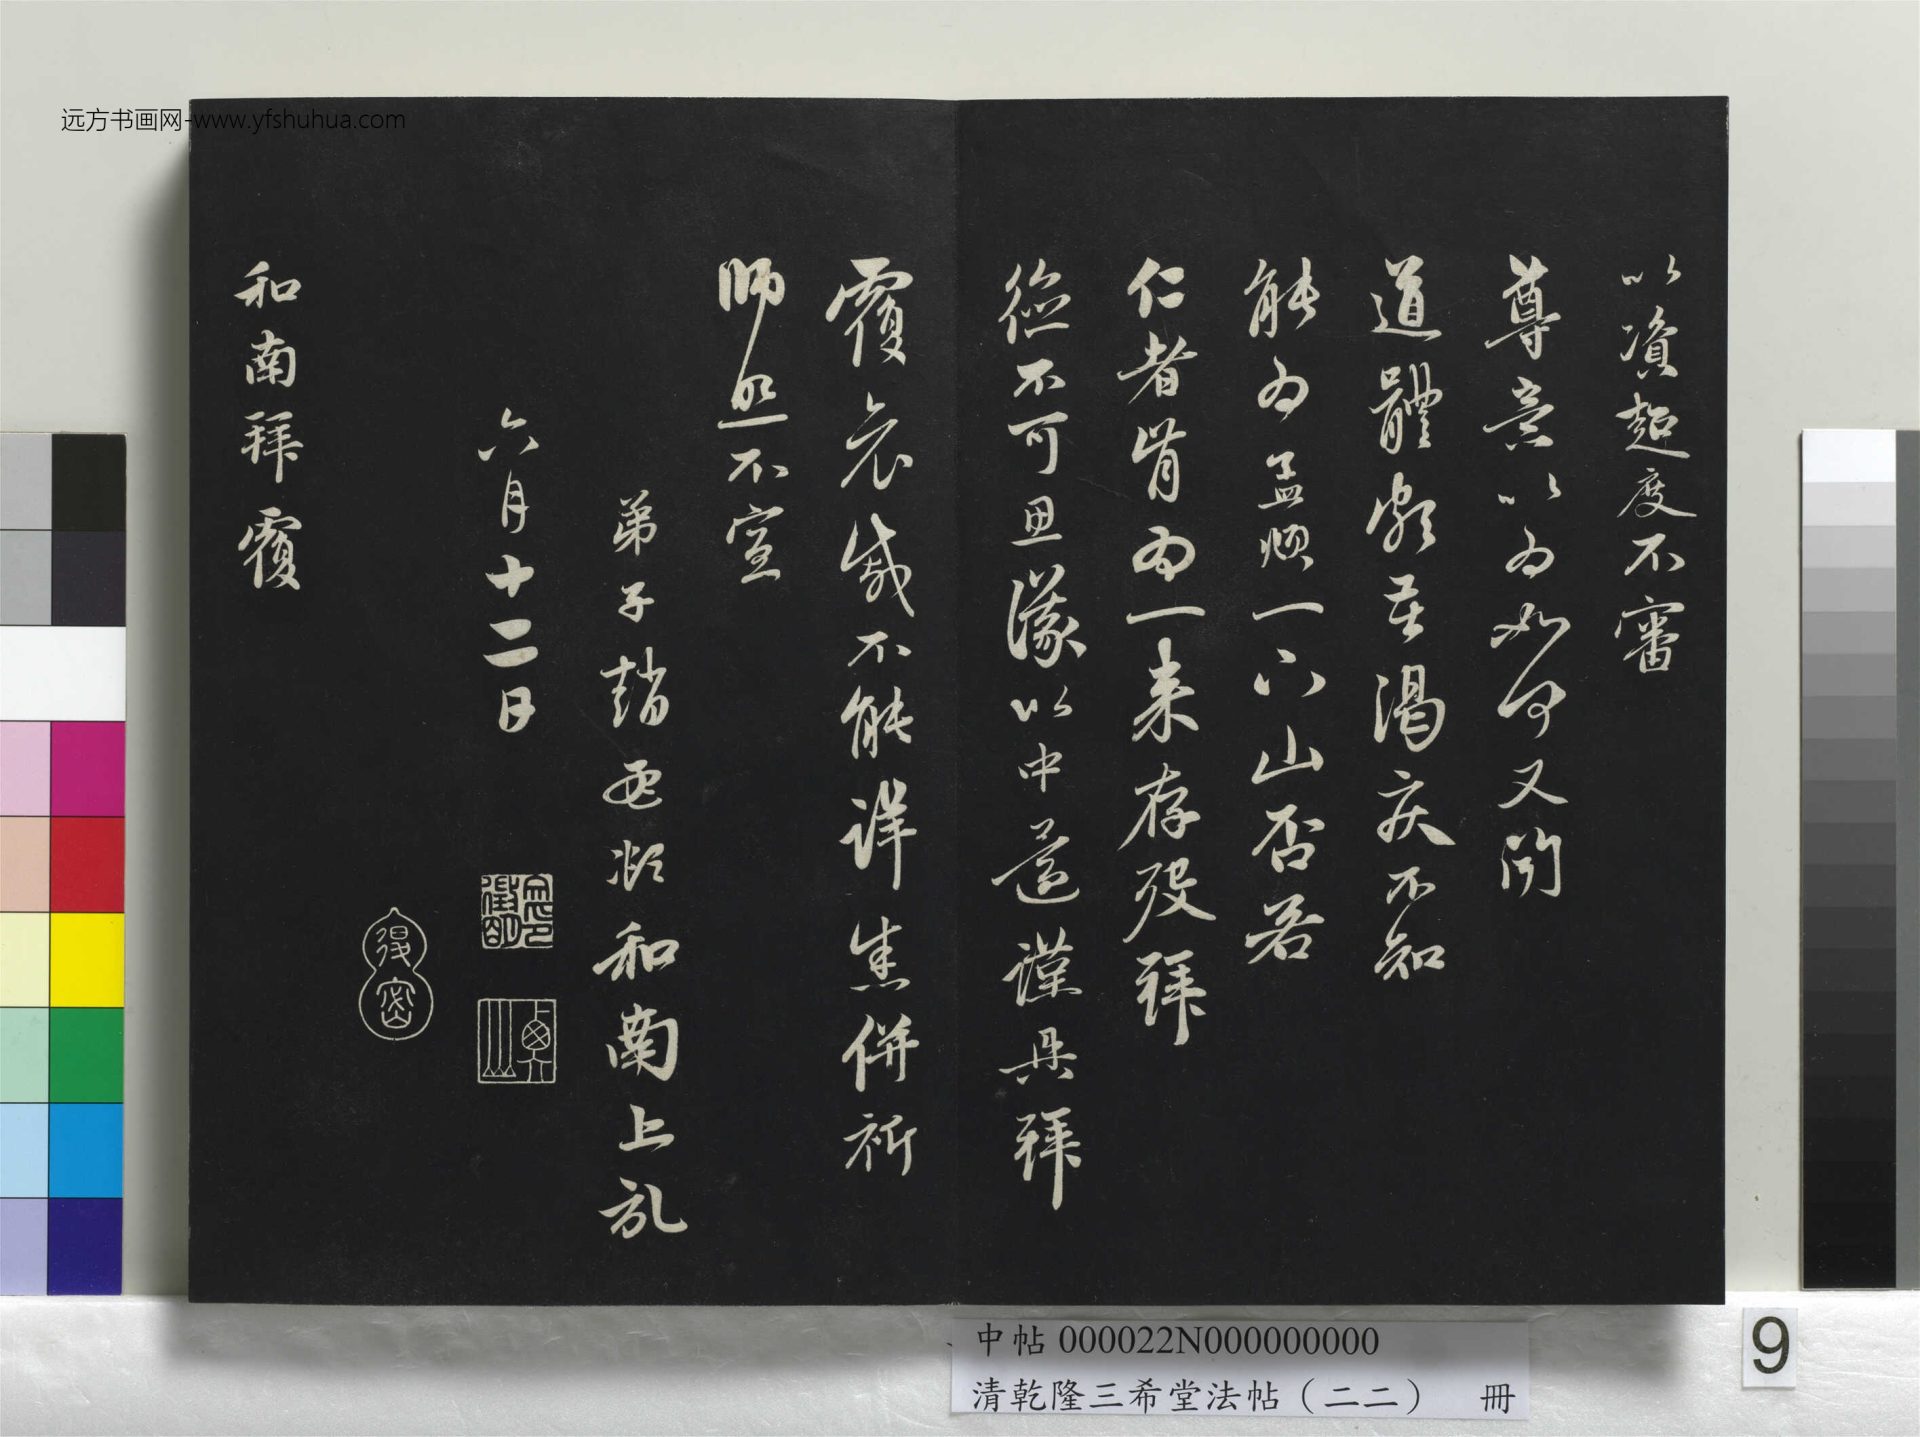 以資超度不審
尊意以為如何又聞
道體頗苦渴疾不知
能為孟頫一下山否若
仁者肯為一來存歿拜
德不可思議以中遠謹具拜
覆哀慼不能詳悉併祈
師照不宣
弟子趙孟頫和南上記
六月十二日
和南拜覆
得密
远方书画网-www.yfshuhua.com
中帖 000022N000000000
清乾隆三希堂法帖（二二） 冊
9